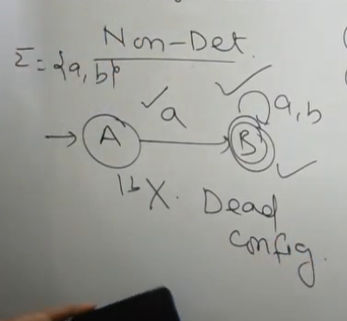 Non-Det.
Σ={a,b}
a
a,b
A
B
X. Dead
config.